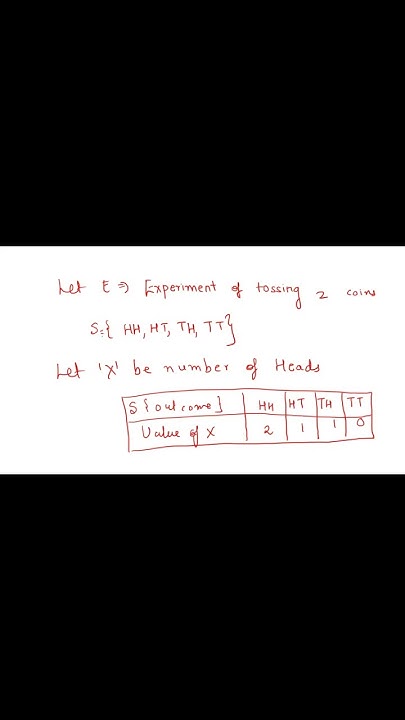 Let E ⇒ Experiment of tossing 2 coins
S={ HH, HT, TH, TT}
Let 'X' be number of Heads
S {outcome} HH HT TH TT
Value of X 2 1 1 0